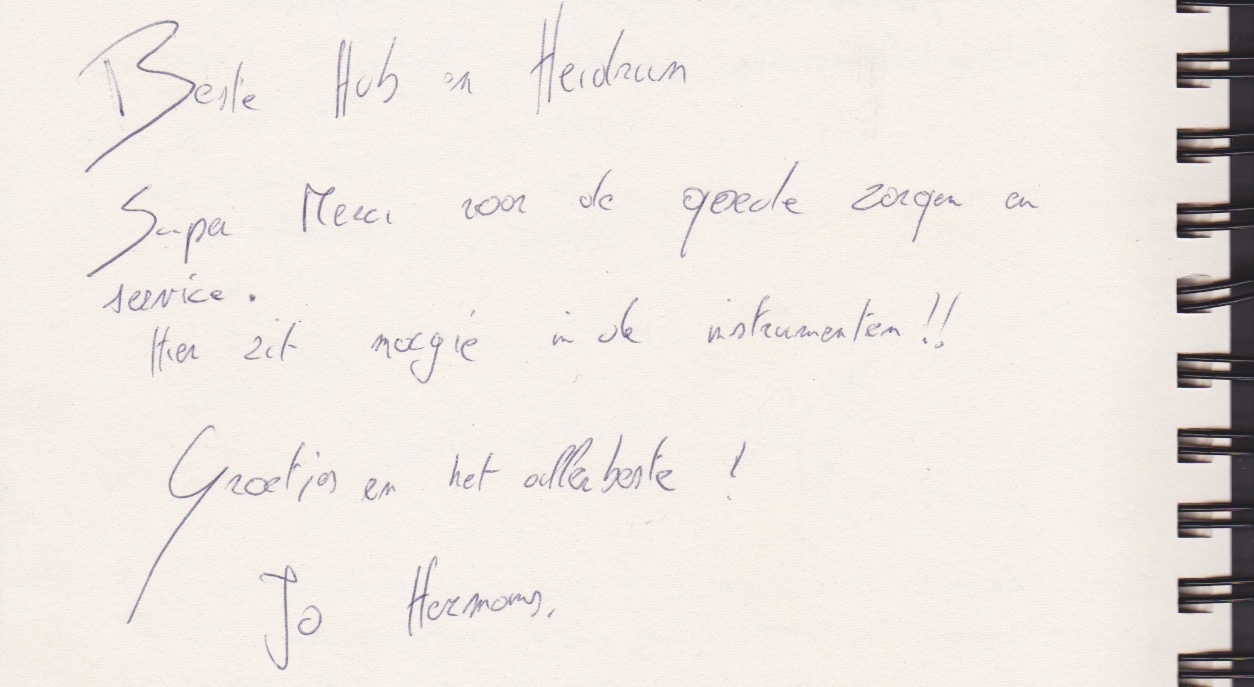 Beste Hub en Heidrun
Super Merci voor de goede zorgen en
service.
Hier zit magie in de instrumenten!!
Groetjes en het allerbeste !
Jo Hermans.